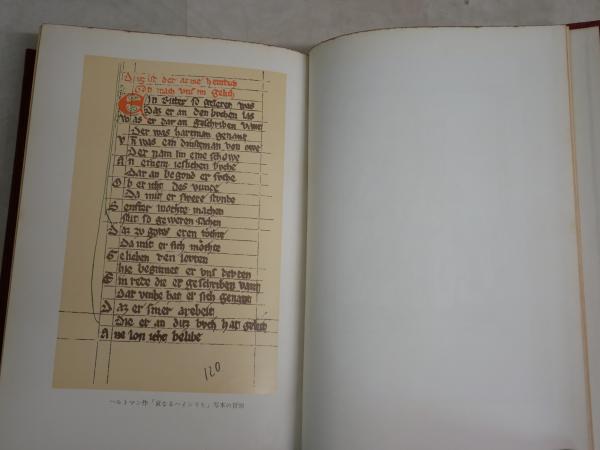 Ditz ist der arme heinrich
Got mach vns im gelich
Ein Ritter so geleret was
Daz er an den bvchen las
was er dar an geschriben vant
Der was hartman genant
vñ was ein dinstman von owe
Der nam im eine schowe
An einem ieslichen bvche
Dar an begond er svche
Ob er icht des vunde
Da mit er swere stvnde
Senfter mochte machen
Daz zv gotes eren tochte
Da mit er sich mochte
Gelieben den levten
hie beginnet er vns devten
Ein rede die er geschriben vant
Dar vmbe hat er sich genant
Daz er siner arebeit
Die er an ditz bvch hat geleit
Ane lon icht belibe
120
ハルトマン作「哀なるハインリヒ」写本の冒頭